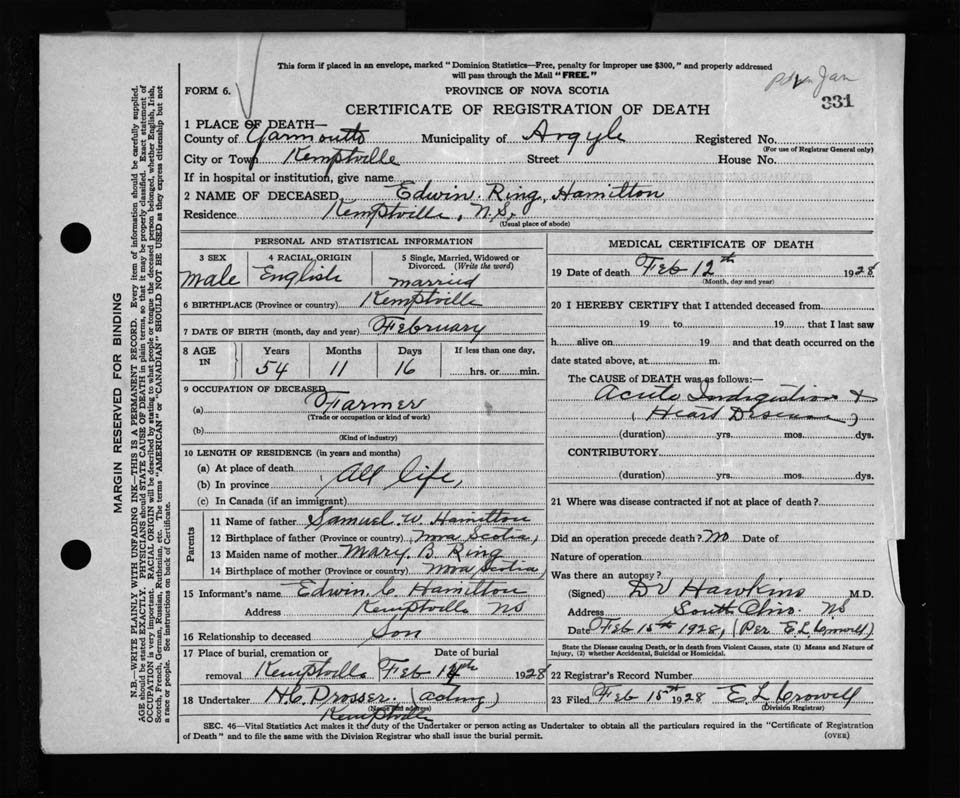 This form if placed in an envelope, marked "Dominion Statistics—Free, penalty for improper use $300," and properly addressed
will pass through the Mail "FREE."
Jan
FORM 6.
PROVINCE OF NOVA SCOTIA
331
CERTIFICATE OF REGISTRATION OF DEATH
1 PLACE OF DEATH—
County of Yarmouth Municipality of Argyle Registered No.
(For use of Registrar General only)
City or Town Kemptville Street House No.
If in hospital or institution, give name
2 NAME OF DECEASED Edwin Ring Hamilton
Residence Kemptville, N.S.
(Usual place of abode)
PERSONAL AND STATISTICAL INFORMATION
3 SEX 4 RACIAL ORIGIN 5 Single, Married, Widowed or Divorced. (Write the word)
Male English married
6 BIRTHPLACE (Province or country) Kemptville
7 DATE OF BIRTH (month, day and year) February
8 AGE IN Years Months Days If less than one day,
54 11 16 hrs. or min.
9 OCCUPATION OF DECEASED
(a) Farmer
(Trade or occupation or kind of work)
(b)
(Kind of industry)
10 LENGTH OF RESIDENCE (in years and months)
(a) At place of death
(b) In province All life,
(c) In Canada (if an immigrant)
Parents
11 Name of father Samuel W. Hamilton
12 Birthplace of father (Province or country) Nova Scotia,
13 Maiden name of mother Mary B. Ring
14 Birthplace of mother (Province or country) Nova Scotia,
15 Informant's name Edwin C. Hamilton
Address Kemptville NS
16 Relationship to deceased Son
17 Place of burial, cremation or removal Date of burial
Kemptville Feb 14th 1928
18 Undertaker H.C. Prosser. (acting)
(Name and address)
Kemptville
MEDICAL CERTIFICATE OF DEATH
19 Date of death Feb 12th 1928
(Month, day and year)
20 I HEREBY CERTIFY that I attended deceased from
19 to 19 that I last saw
h alive on 19 and that death occurred on the
date stated above, at m.
The CAUSE of DEATH was as follows:—
Acute Indigestion &
(Heart Disease)
(duration) yrs. mos. dys.
CONTRIBUTORY
(duration) yrs. mos. dys.
21 Where was disease contracted if not at place of death?
Did an operation precede death? No Date of
Nature of operation
Was there an autopsy?
(Signed) DV Hawkins M.D.
Address South Ohio. NS
Date Feb 15th 1928, (Per E L Crowell)
State the Disease causing Death, or in death from Violent Causes, state (1) Means and Nature of
Injury, (2) whether Accidental, Suicidal or Homicidal.
22 Registrar's Record Number
23 Filed Feb 15th 1928 E L Crowell
(Division Registrar)
SEC. 46—Vital Statistics Act makes it the duty of the Undertaker or person acting as Undertaker to obtain all the particulars required in the "Certificate of Registration
of Death" and to file the same with the Division Registrar who shall issue the burial permit.
(OVER)
MARGIN RESERVED FOR BINDING
N.B.—WRITE PLAINLY WITH UNFADING INK—THIS IS A PERMANENT RECORD. Every item of information should be carefully supplied.
AGE should be stated EXACTLY. PHYSICIANS should STATE CAUSE OF DEATH in plain terms, so that it may be properly classified. Exact statement of
OCCUPATION is very important. RACIAL ORIGIN will be described by stating to what people or tongue the deceased person belonged, whether English, Irish,
Scotch, French, German, Russian, Ruthenian, etc. The terms "AMERICAN" or "CANADIAN" SHOULD NOT BE USED as they express citizenship but not
a race or people. See instructions on back of Certificate.